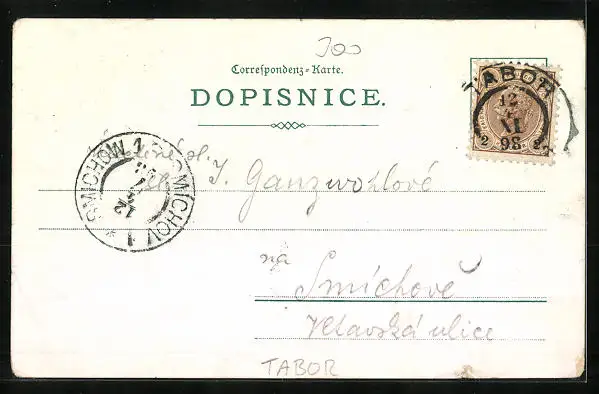 300
Correspondenz-Karte.
DOPISNICE.
TABOR
12
VI
98
2 2
SMICHOW 1 SMÍCHOV 1
12
sl. J. Ganzwohlové
na
Smíchově
Vltavská ulice
TABOR